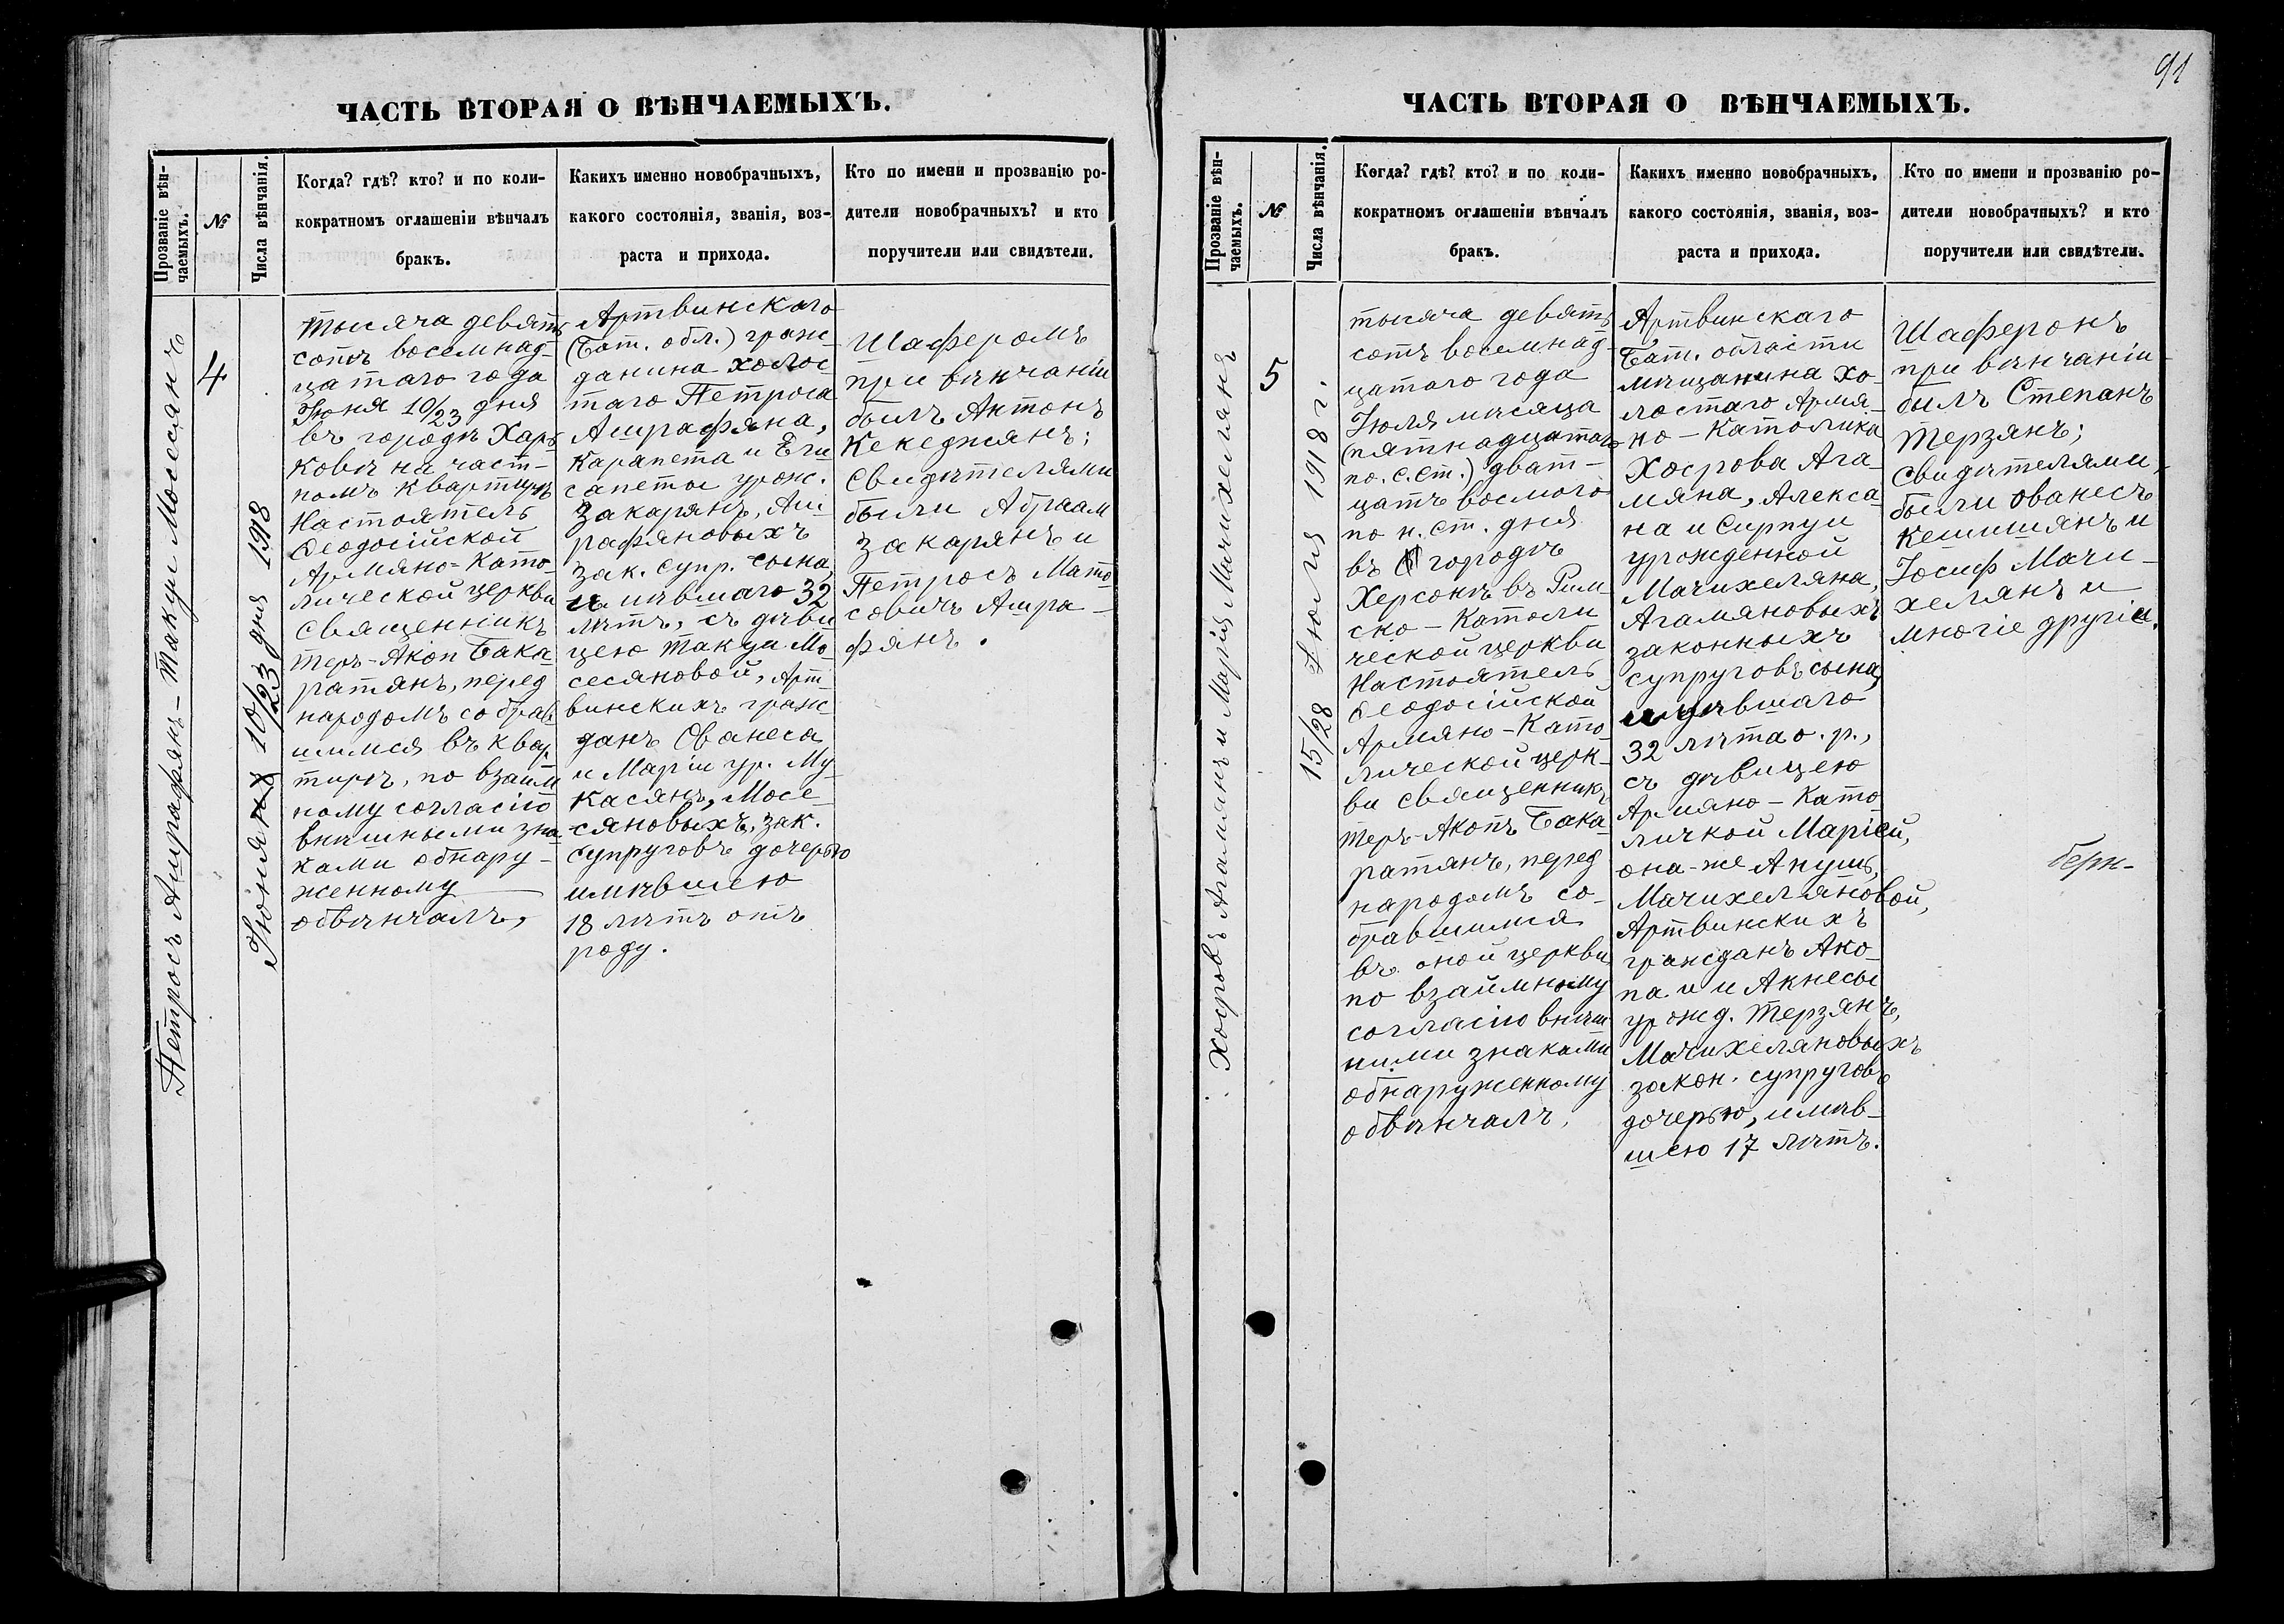 ЧАСТЬ ВТОРАЯ О ВѢНЧАЕМЫХЪ.
Прозваніе вѣн-
чаемыхъ.
№
Числа вѣнчанія.
Когда? гдѣ? кто? и по коли-
кократномъ оглашеніи вѣнчалъ
бракъ.
Какихъ именно новобрачныхъ,
какого состоянія, званія, воз-
раста и прихода.
Кто по имени и прозванію ро-
дители новобрачныхъ? и кто
поручители или свидѣтели.
Петросъ Ашрафянъ - Такуи Мосесянъ
4
Іюня 10/23 дня 1918
тысяча девять
сотъ восемнад-
цатаго года
Іюня 10/23 дня
въ городѣ Харь
ковѣ на част-
номъ квартирѣ
Настоятель
Ѳеодосійской
Армяно-Като
лической церкви
Священникъ
Теръ-Акоп Бака
ратянъ, перед
народомъ собрав
шимся въ квар
тирѣ, по взаим
ному согласію
внѣшными зна
ками обнару-
женному
обвѣнчалъ,
Артвинскаго
(Бат. обл.) граж
данина холос
таго Петроса
Ашрафяна,
Карапета и Еги
сапеты урож.
Закарянъ, Аш
рафяновыхъ
зак. супр. сына,
имѣвшаго 32
лѣтъ, съ дѣви
цею Такуи Мо
сесяновой, Арт
винскихъ граж
данъ Ованеса
и Маріи ур. Му
касянъ, Мосе-
сяновыхъ, зак.
супруговъ дочерью
имѣвшею
18 лѣтъ отъ
роду.
Шаферомъ
при вѣнчаніи
былъ Антонъ
Кекеджянъ;
Свидѣтелями
были Абраам
Закарянъ и
Петросъ Мато
совичъ Ашра-
фянъ.
91
ЧАСТЬ ВТОРАЯ О ВѢНЧАЕМЫХЪ.
Прозваніе вѣн-
чаемыхъ.
№
Числа вѣнчанія.
Когда? гдѣ? кто? и по коли-
кократномъ оглашеніи вѣнчалъ
бракъ.
Какихъ именно новобрачныхъ,
какого состоянія, званія, воз-
раста и прихода.
Кто по имени и прозванію ро-
дители новобрачныхъ? и кто
поручители или свидѣтели.
Хосровъ Агамянъ и Марія Мачихелянъ
5
15/28 Іюля 1918 г.
тысяча девять
сотъ восемнад-
цатаго года
Іюля мѣсяца
(пятнадцатаго
по. с. ст.) двает-
цать восмого
по н. ст. дня
въ городѣ
Херсонѣ въ Рим
ско-Католи
ческой церкви
Настоятель
Ѳеодосійской
Армяно-Като
лической церк-
ви священникъ
Теръ-Акопъ Бака
ратянъ, перед
народомъ со-
бравшимся
въ оной церкви
по взаимному
согласію внѣш
ними знаками
обнаруженному
обвѣнчалъ,
Артвинскаго
Бат. области
мѣщанина хо-
лостаго Армя-
но-Католика
Хосрова Ага-
мяна, Алекса
на и Сирпуи
урожденной
Мачихеляна,
Агамяновыхъ
законныхъ
супруговъ сына,
имѣвшаго
32 лѣта о. р.,
съ дѣвицею
Армяно-Като
личкой Маріей,
она-же Ануш,
Мачихеляновой,
Артвинскихъ
гражданъ Ако-
па и и Акнесы
урожд. Терзянъ,
Мачихеляновыхъ
закон. супруговъ
дочерью, имѣв-
шею 17 лѣтъ.
Шаферонъ
при вѣнчаніи
былъ Степанъ
Терзянъ;
свидѣтелями
были Ованесъ
Кешишянъ и
Іосиф Мачи-
хелянъ и
многіе другіе.